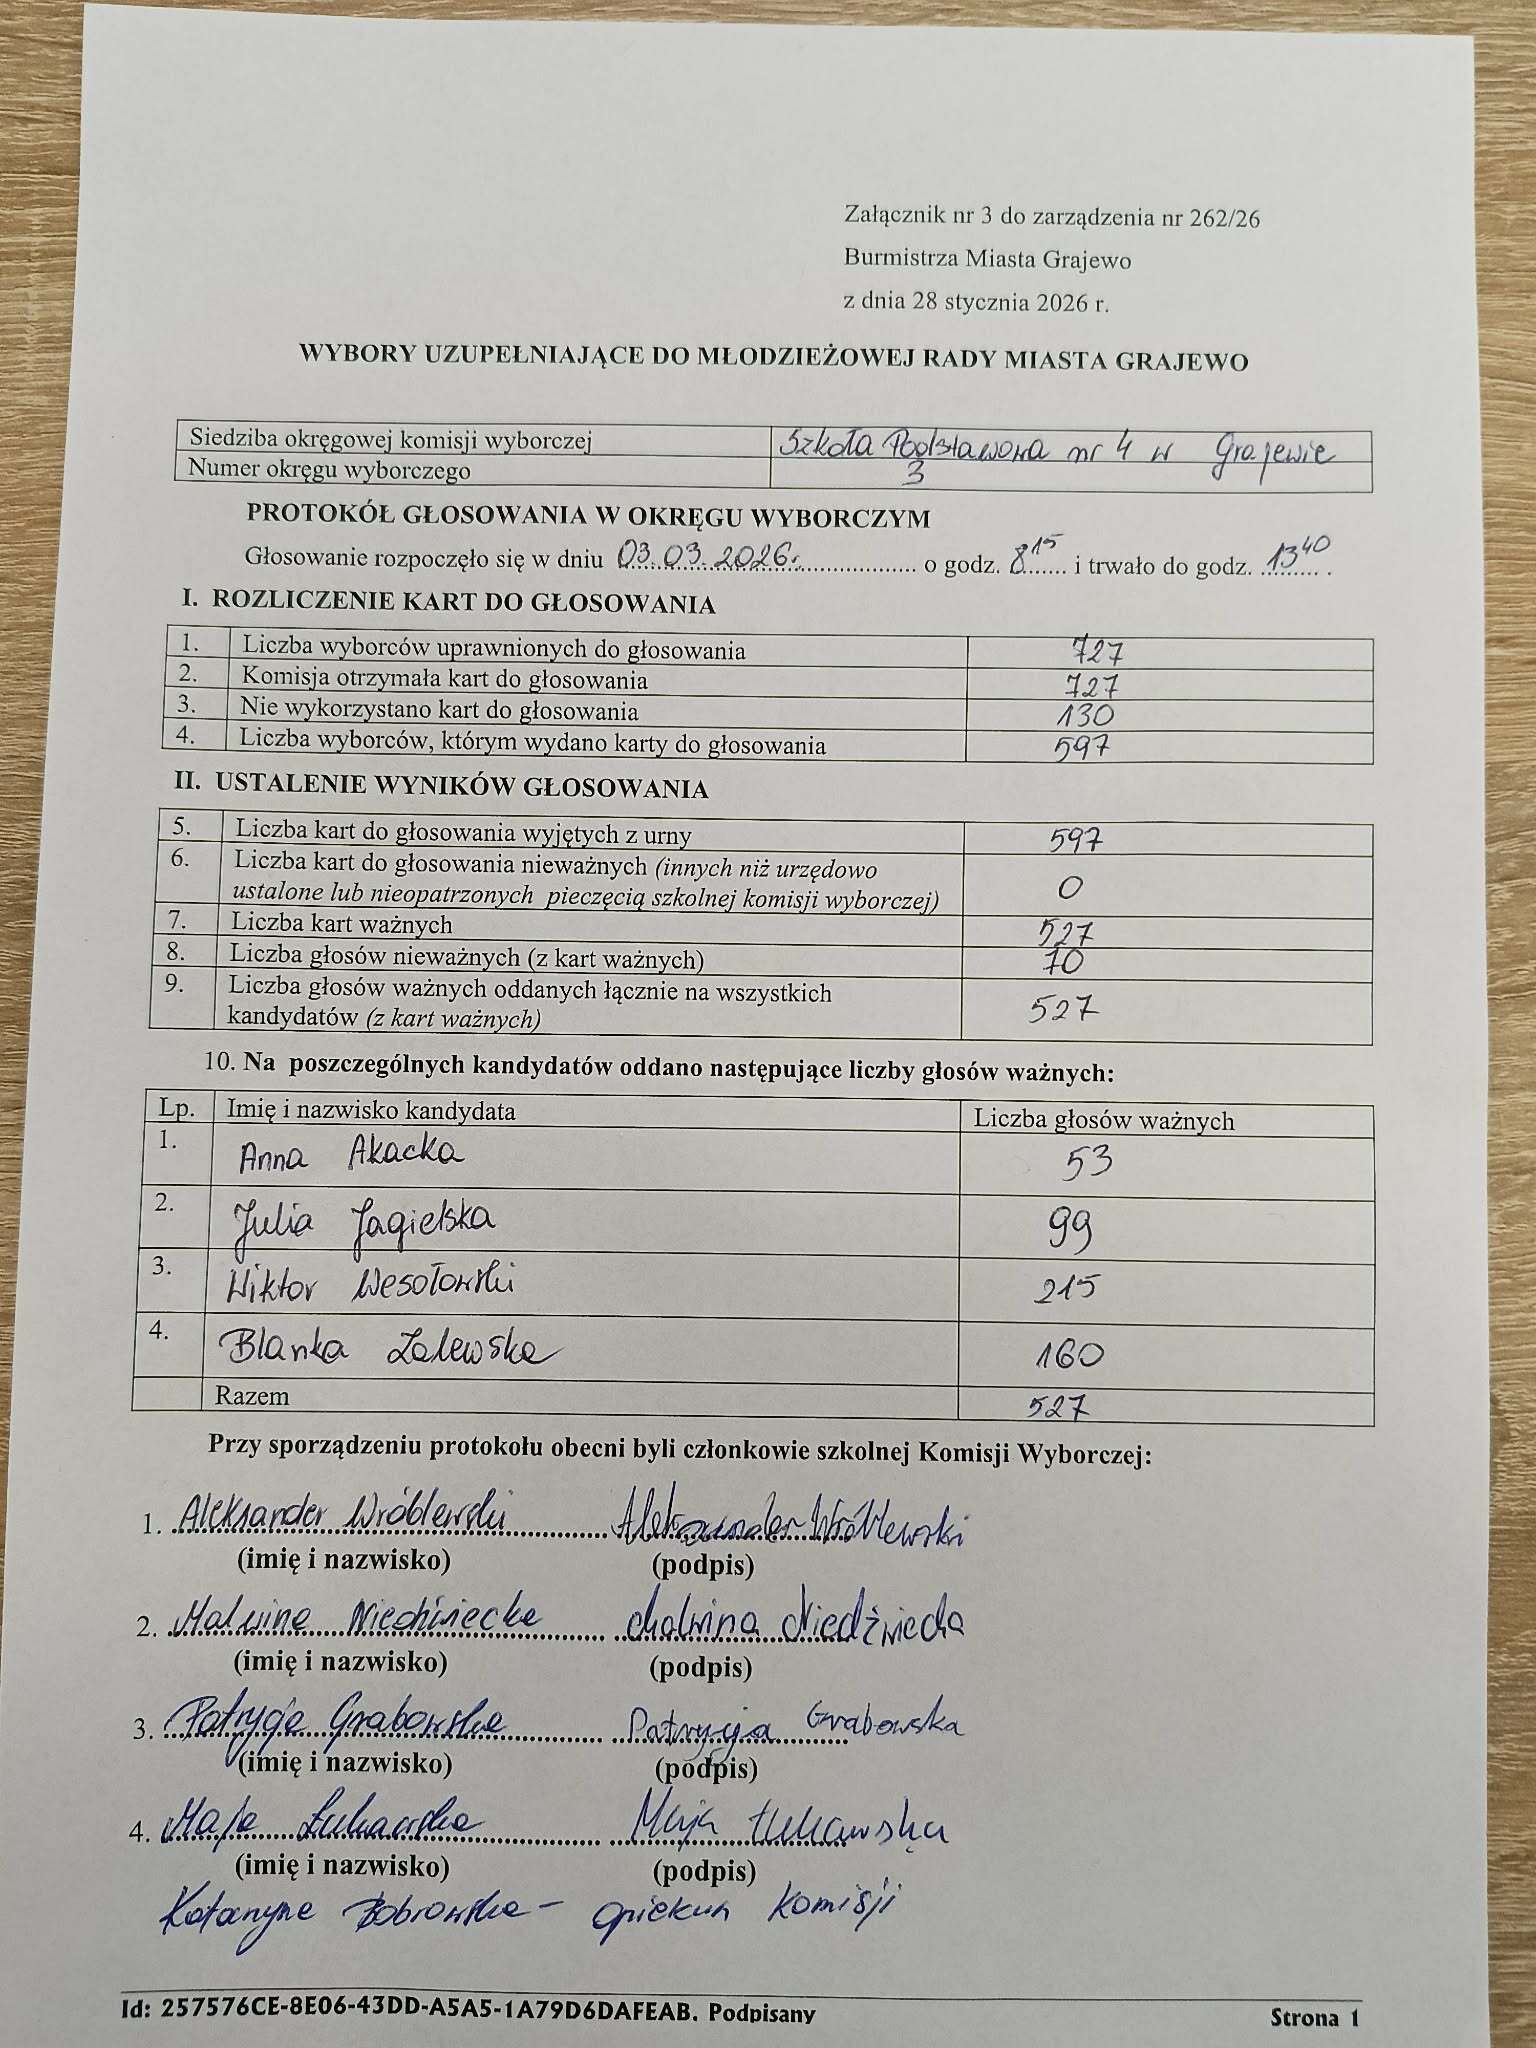 Załącznik nr 3 do zarządzenia nr 262/26
Burmistrza Miasta Grajewo
z dnia 28 stycznia 2026 r.
WYBORY UZUPEŁNIAJĄCE DO MŁODZIEŻOWEJ RADY MIASTA GRAJEWO
Siedziba okręgowej komisji wyborczej Szkoła Podstawowa nr 4 w Grajewie
Numer okręgu wyborczego 3
PROTOKÓŁ GŁOSOWANIA W OKRĘGU WYBORCZYM
Głosowanie rozpoczęło się w dniu 03.03.2026r. o godz. 8 15 i trwało do godz. 13 40
I. ROZLICZENIE KART DO GŁOSOWANIA
1. Liczba wyborców uprawnionych do głosowania 727
2. Komisja otrzymała kart do głosowania 727
3. Nie wykorzystano kart do głosowania 130
4. Liczba wyborców, którym wydano karty do głosowania 597
II. USTALENIE WYNIKÓW GŁOSOWANIA
5. Liczba kart do głosowania wyjętych z urny 597
6. Liczba kart do głosowania nieważnych (innych niż urzędowo
ustalone lub nieopatrzonych pieczęcią szkolnej komisji wyborczej) 0
7. Liczba kart ważnych 527
8. Liczba głosów nieważnych (z kart ważnych) 70
9. Liczba głosów ważnych oddanych łącznie na wszystkich
kandydatów (z kart ważnych) 527
10. Na poszczególnych kandydatów oddano następujące liczby głosów ważnych:
Lp. Imię i nazwisko kandydata Liczba głosów ważnych
1. Anna Akacka 53
2. Julia Jagielska 99
3. Wiktor Wesołowski 215
4. Blanka Zalewska 160
Razem 527
Przy sporządzeniu protokołu obecni byli członkowie szkolnej Komisji Wyborczej:
1. Aleksander Wróblewski Aleksander Wróblewski
(imię i nazwisko) (podpis)
2. Malwina Niedźwiecka Malwina Niedźwiecka
(imię i nazwisko) (podpis)
3. Patrycja Grabowska Patrycja Grabowska
(imię i nazwisko) (podpis)
4. Maja Łukawska Maja Łukawska
(imię i nazwisko) (podpis)
Katarzyna Bobrowska - opiekun Komisji
Id: 257576CE-8E06-43DD-A5A5-1A79D6DAFEAB. Podpisany Strona 1